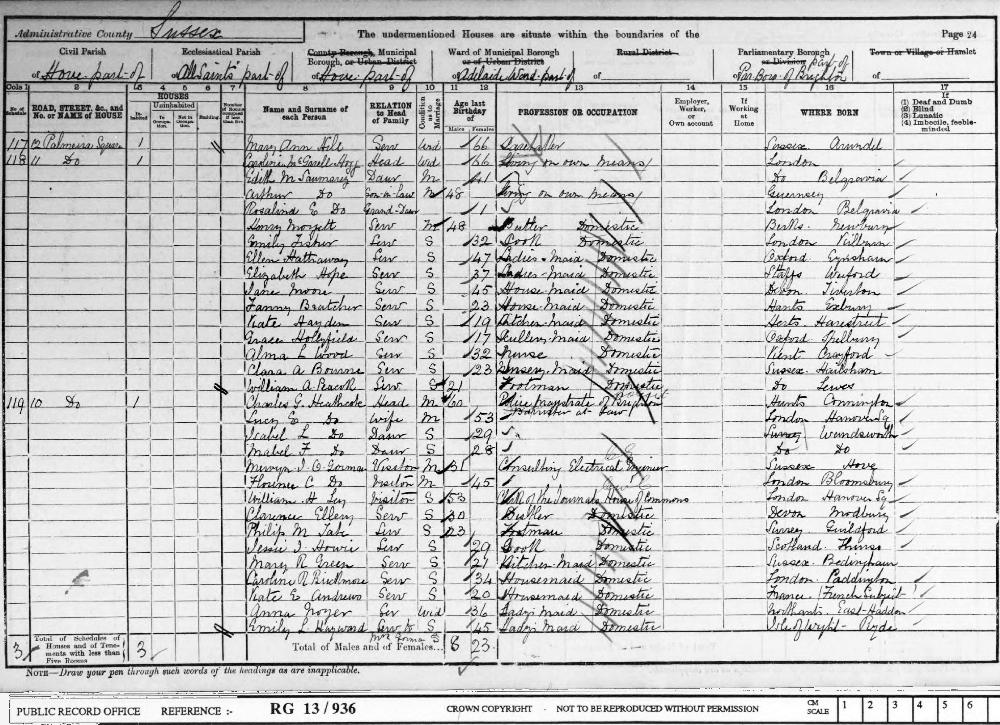 Administrative County Sussex The undermentioned Houses are situate within the boundaries of the Page 24
Civil Parish Ecclesiastical Parish County Borough, Municipal Borough, or Urban District Ward of Municipal Borough or of Urban District Rural District Parliamentary Borough or Division Town or Village or Hamlet
of Hove part of of All Saints part of of Hove part of of Adelaide Ward part of of part of Par. Boro. of Brighton of
Cols 1 2 3 4 5 6 7 8 9 10 11 12 13 14 15 16 17
No. of Schedule ROAD, STREET, &c., and No. or NAME of HOUSE HOUSES Inhabited Uninhabited In Occupation Not in Occupation Building Number of Rooms occupied if less than five Name and Surname of each Person RELATION to Head of Family Condition as to Marriage Age last Birthday of Males Females PROFESSION OR OCCUPATION Employer, Worker, or Own account If Working at Home WHERE BORN If (1) Deaf and Dumb (2) Blind (3) Lunatic (4) Imbecile, feeble-minded
117 12 Palmeira Square 1 Mary Ann Hill Serv Wd 66 Caretaker Sussex Arundel
118 11 Do 1 Caroline Hogg Head Wd 66 Living on own means London
Edith M Saumarez Daur M 41 Do Belgravia
Arthur Do Son-in-law M 48 Living on own means Guernsey
Rosalind E Do Grand-Daur 11 London Belgravia
Henry Serv M 48 Butler Domestic Berks Newbury
Emily Fisher Serv S 32 Cook Domestic London Kilburn
Ellen Hathaway Serv S 47 Ladies-Maid Domestic Oxford Eynsham
Elizabeth Hope Serv S 37 Ladies-Maid Domestic Staffs
Jane Moore Serv S 45 House-Maid Domestic Devon Tiverton
Fanny Bratcher Serv S 23 House-Maid Domestic Hants Exbury
Kate Hayden Serv S 19 Kitchen-Maid Domestic Herts Harestreet
Grace Hollyfield Serv S 17 Scullery-Maid Domestic Oxford
Alma L Wood Serv S 32 Nurse Domestic Kent Crayford
Clara A Bourne Serv S 23 Nursery-Maid Domestic Sussex Hailsham
William A Peacock Serv S 21 Footman Domestic Do Lewes
119 10 Do 1 Charles G. Heathcote Head M 60 Police Magistrate of Brighton Barrister at Law Hunts Connington
Lucy E Do Wife M 53 London Hanover Sq
Isabel L Do Daur S 29 Surrey Wandsworth
Mabel F Do Daur S 28 Do Do
Visitor M 31 Consulting Electrical Engineer Sussex Hove
Florence C Do Visitor M 45 London Bloomsbury
William H Ley Visitor S 53 Clerk of the Journals House of Commons London Hanover Sq
Clarence Ellery Serv S 30 Butler Domestic Devon Modbury
Philip M Serv S 23 Footman Domestic Surrey Guildford
Jessie J Howie Serv S 29 Cook Domestic Scotland
Mary R Green Serv S 21 Kitchen-Maid Domestic Sussex Bedingham
Caroline R Bickmore Serv S 34 Housemaid Domestic London Paddington
Kate E Andrews Serv S 20 Housemaid Domestic France (French Subject)
Anna Ser Wid 36 Lady's Maid Domestic Northants East-Haddon
Emily L Hayward Serv to Mrs S 45 Lady's Maid Domestic Isle of Wight - Ryde
3 Total of Schedules of Houses and of Tenements with less than Five Rooms 3 Total of Males and of Females... 8 23
NOTE—Draw your pen through such words of the headings as are inapplicable.
PUBLIC RECORD OFFICE REFERENCE :- RG 13 / 936 CROWN COPYRIGHT - NOT TO BE REPRODUCED WITHOUT PERMISSION CM SCALE 1 2 3 4 5 6